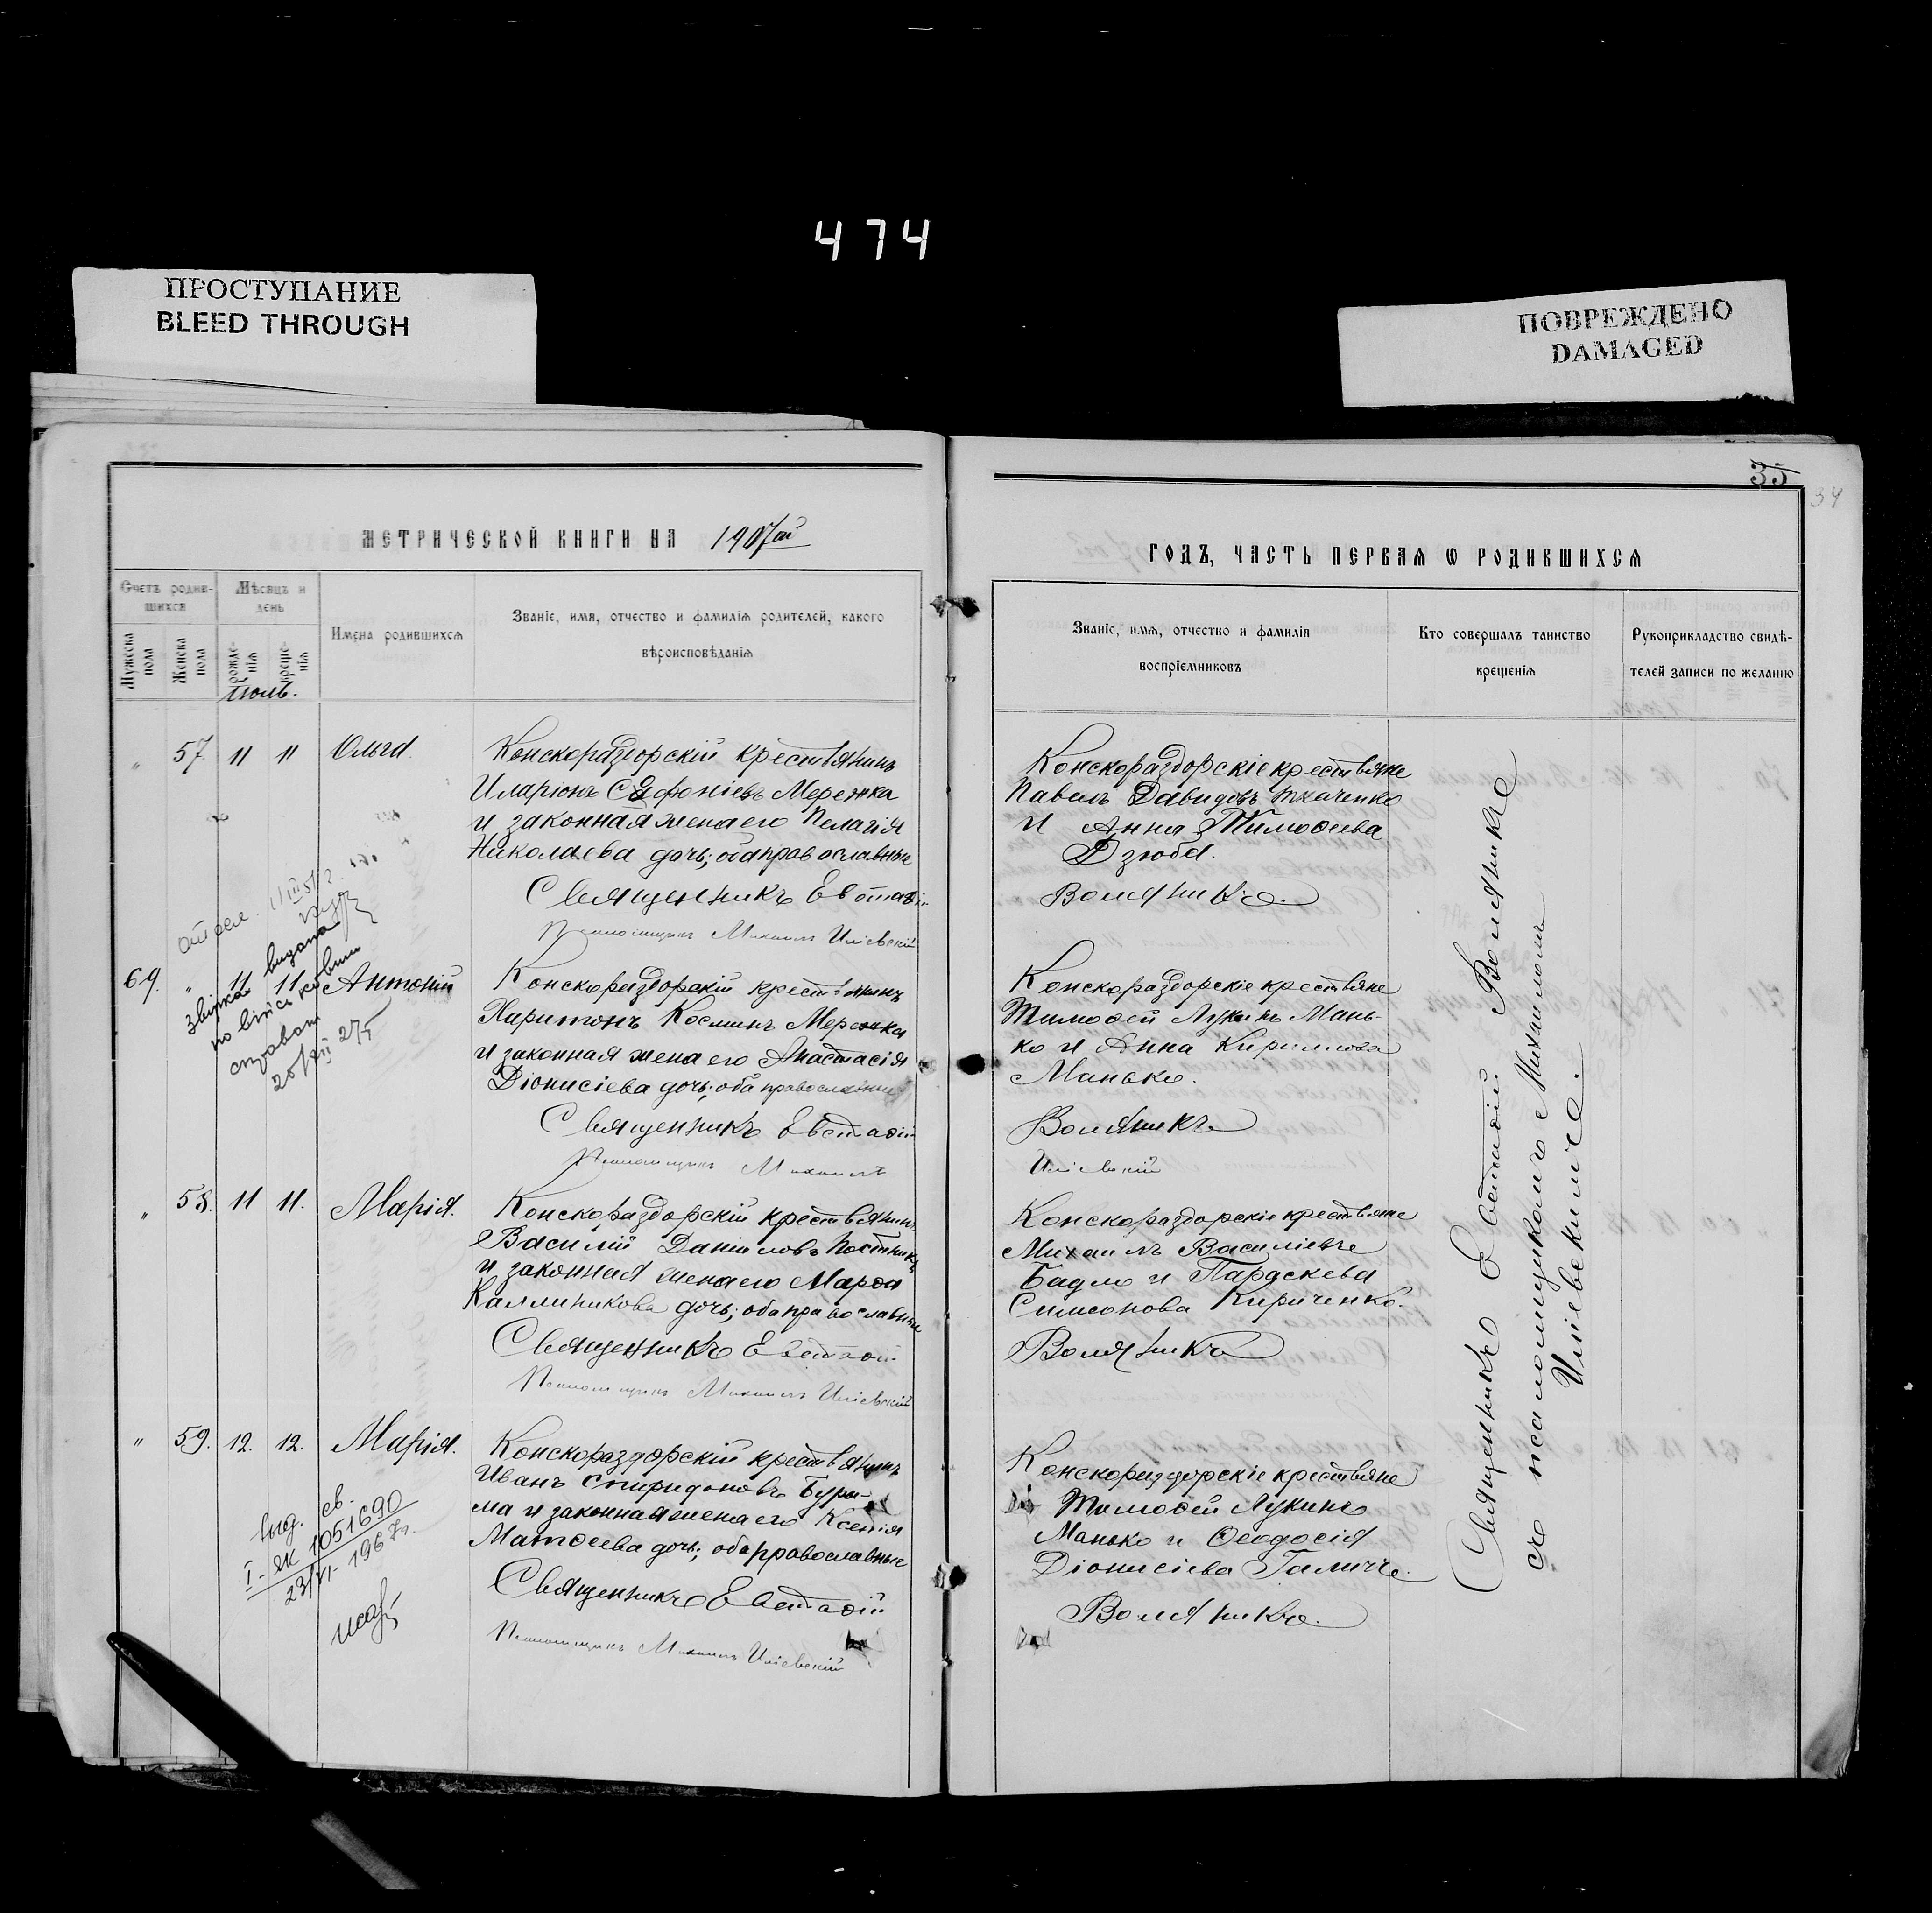 474
ПРОСТУПАНИЕ
BLEED THROUGH
ПОВРЕЖДЕНО
DAMAGED
МЕТРИЧЕСКОЙ КНИГИ НА 1907ой
Счетъ родив-
шихся
Мѣсяцъ и
день
Мужеска
пола
Женска
пола
рожде-
нія
креще-
нія
Имена родившихся
Званіе, имя, отчество и фамилія родителей, какого
вѣроисповѣданія
Іюль.
" 57 11 11 Ольга
Конскораздорскій крестьянинъ
Иларіонъ Софоніевъ Мережка
и законная жена его Пелагія
Николаева дочь; оба православные
Священникъ Евстафій
Псаломщикъ Михаилъ Иліевскій
69. " 11 11 Антоній
Конскораздорскій крестьянинъ
Харитонъ Косминъ Мережка
и законная жена его Анастасія
Діонисіева дочь; оба православные
Священникъ Евстафій
Псаломщикъ Михаилъ
звірка видана
по військовим
справам
" 58. 11 11. Марія.
Конскораздорскій крестьянинъ
Василій Даніиловъ
и законная жена его Марфа
Каллиникова дочь; оба православные
Священникъ Евстафій
Псаломщикъ Михаилъ Иліевскій
" 59. 12. 12. Марія.
Конскораздорскій крестьянинъ
Иванъ Спиридоновъ Буры-
ма и законная жена его Ксенія
Матѳеева дочь; оба православные
Священникъ Евстафій
Псаломщикъ Михаилъ Иліевскій
выд. св.
I-ЯК 1051690
23/VI-1967г.
35
34
ГОДЪ, ЧАСТЬ ПЕРВАЯ Ѡ РОДИВШИХСЯ
Званіе, имя, отчество и фамилія
воспріемниковъ
Кто совершалъ таинство
крещенія
Рукоприкладство свидѣ-
телей записи по желанію
Конскораздорскіе крестьяне
Павелъ Давидовъ Ткаченко
и Анна Тимоѳеева
Дзюба.
Воляникъ.
Конскораздорскіе крестьяне
Тимоѳей Лукинъ Мань-
ко и Анна Кириллова
Манько.
Воляникъ
Иліевскій
Конскораздорскіе крестьяне
Михаилъ Василіевъ
Бадло и Параскева
Симеонова Кириченко.
Воляникъ
Конскораздорскіе крестьяне
Тимоѳей Лукинъ
Манько и Ѳеодосія
Діонисіева
Воляникъ.
Священникъ Евстафій Воляникъ
съ псаломщикомъ Михаиломъ
Иліевскимъ.